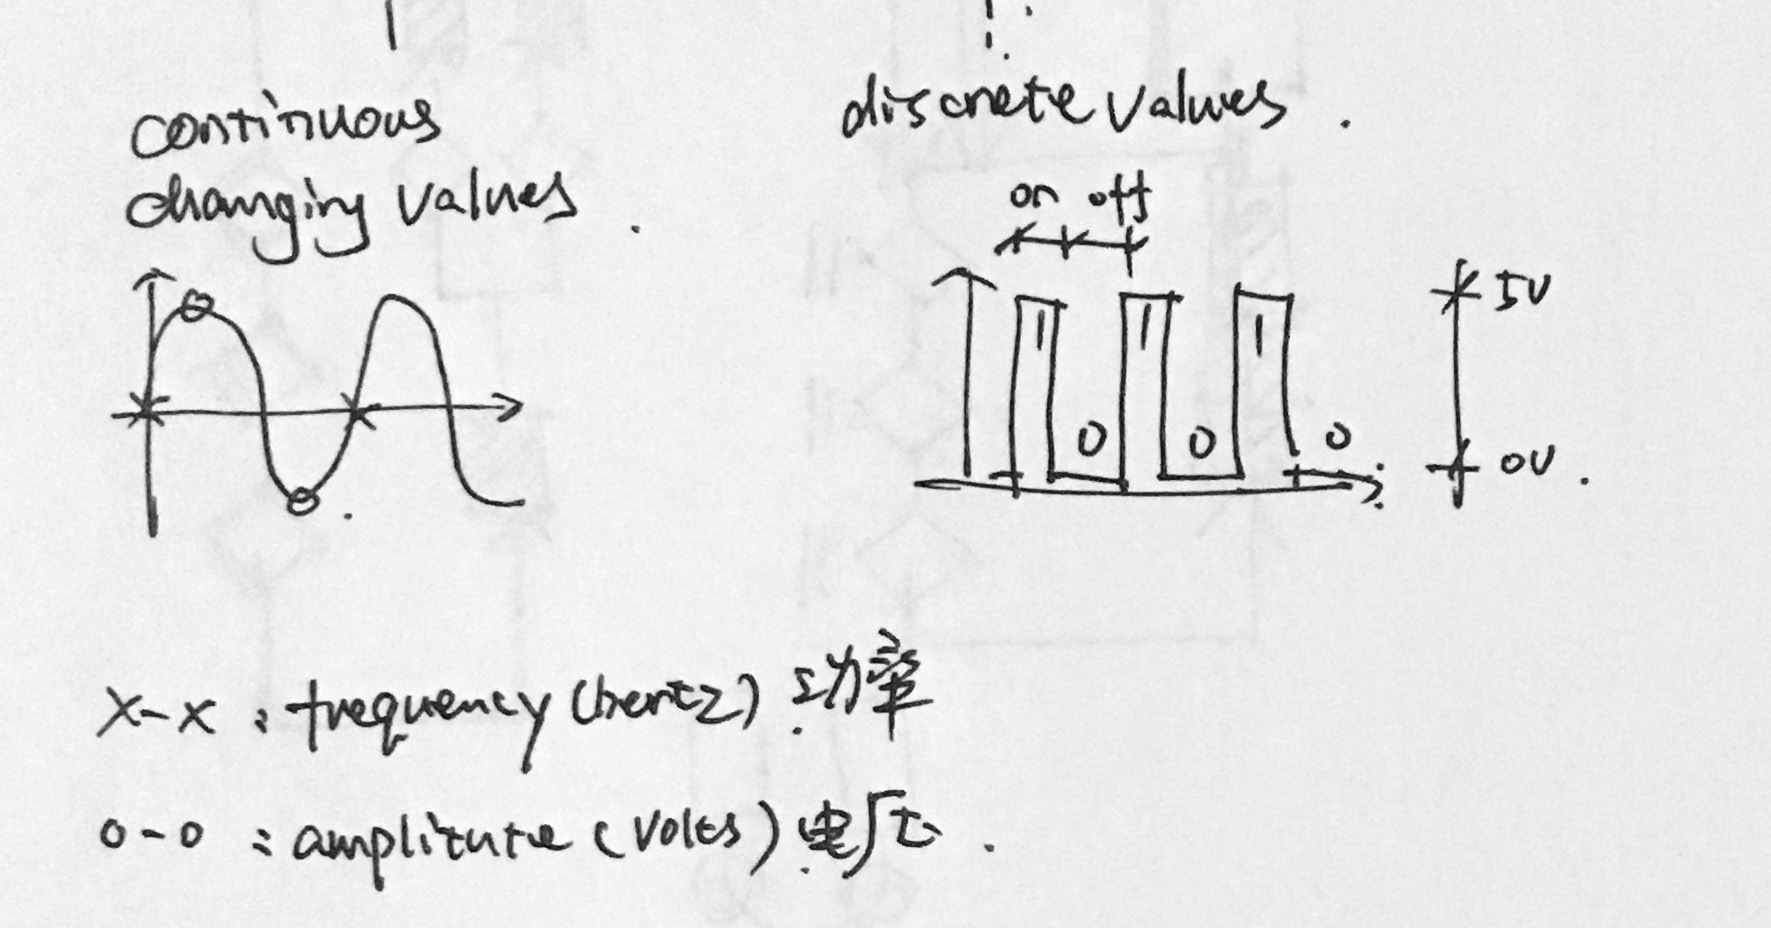 continuous
changing values.
discrete values.
on off
1 0 1 0 1 0
5V
0V.
x-x: frequency (hertz) 功率
o-o: ampliture (volts) 电压.